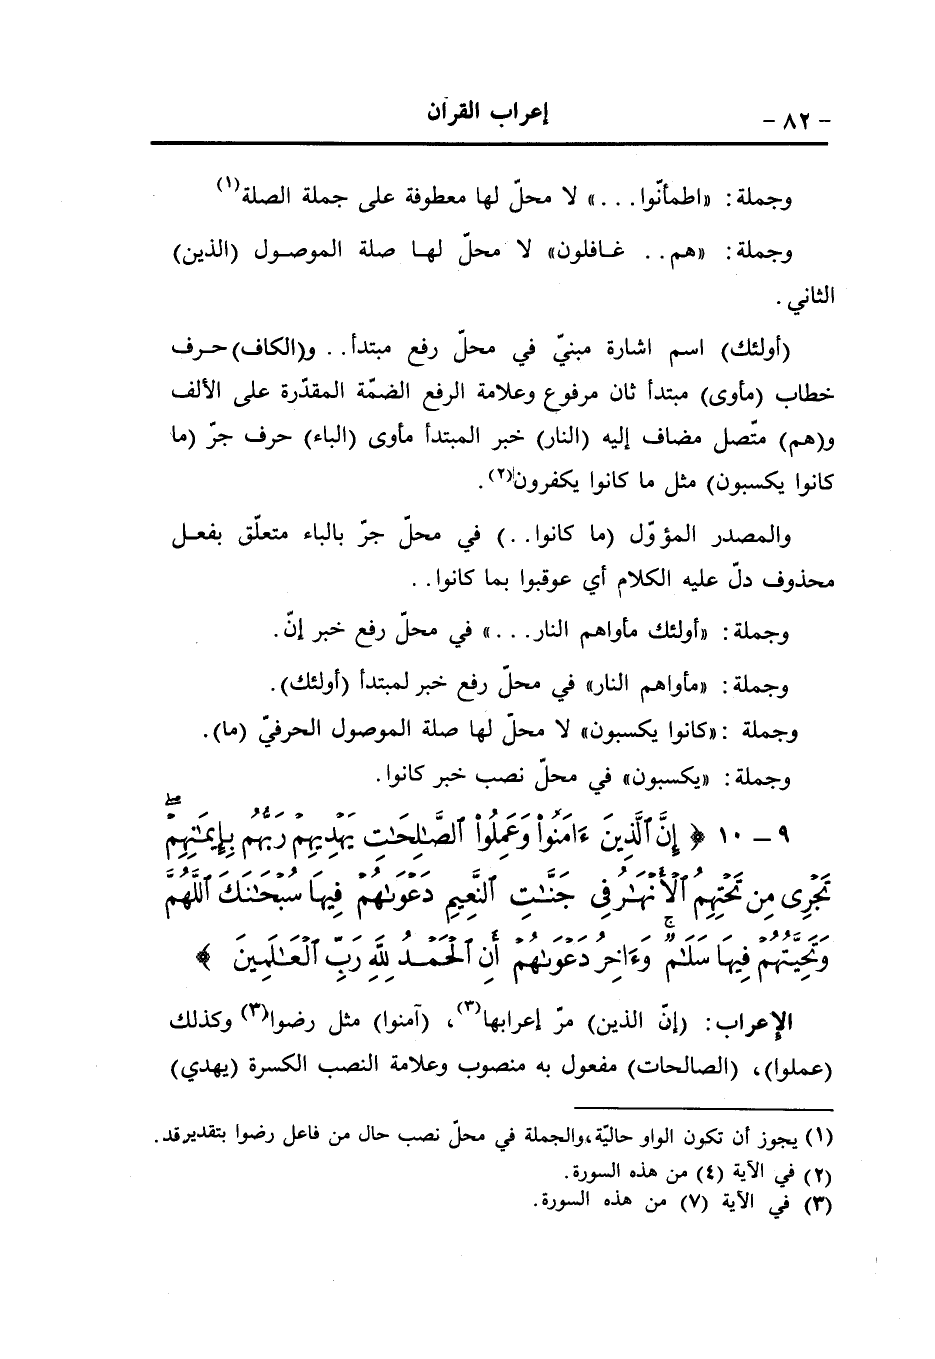 - ٨٢ - إعراب القرآن
وجملة: «اطمأنّوا...» لا محلّ لها معطوفة على جملة الصلة(١)
وجملة: «هم.. غـافلون» لا محلّ لهـا صلة الموصـول (الذين)
الثاني.
(أولئك) اسم اشارة مبنيّ في محلّ رفع مبتدأ.. و(الكاف) حـرف
خطاب (مأوى) مبتدأ ثان مرفوع وعلامة الرفع الضمّة المقدّرة على الألف
و(هم) متّصل مضاف إليه (النار) خبر المبتدأ مأوى (الباء) حرف جرّ (ما
كانوا يكسبون) مثل ما كانوا يكفرون(٢).
والمصدر المؤوّل (ما كانوا..) في محلّ جرّ بالباء متعلّق بفعـل
محذوف دلّ عليه الكلام أي عوقبوا بما كانوا..
وجملة: «أولئك مأواهم النار...» في محلّ رفع خبر إنّ.
وجملة: «مأواهم النار» في محلّ رفع خبر لمبتدأ (أولئك).
وجملة :«كانوا يكسبون» لا محلّ لها صلة الموصول الحرفيّ (ما).
وجملة: «يكسبون» في محلّ نصب خبر كانوا.
٩ - ١٠ ﴿ إِنَّ ٱلَّذِينَ ءَامَنُواْ وَعَمِلُواْ ٱلصَّـٰلِحَـٰتِ يَهْدِيهِمْ رَبُّهُم بِإِيمَـٰنِهِمْ ۖ
تَجْرِى مِن تَحْتِهِمُ ٱلْأَنْهَـٰرُ فِى جَنَّـٰتِ ٱلنَّعِيمِ دَعْوَىٰهُمْ فِيهَا سُبْحَـٰنَكَ ٱللَّهُمَّ
وَتَحِيَّتُهُمْ فِيهَا سَلَـٰمٌ ۚ وَءَاخِرُ دَعْوَىٰهُمْ أَنِ ٱلْحَمْدُ لِلَّهِ رَبِّ ٱلْعَـٰلَمِينَ ﴾
الإعراب: (إنّ الذين) مرّ إعرابها(٣)، (آمنوا) مثل رضوا(٣) وكذلك
(عملوا)، (الصالحات) مفعول به منصوب وعلامة النصب الكسرة (يهدي)
(١) يجوز أن تكون الواو حاليّة،والجملة في محلّ نصب حال من فاعل رضوا بتقدير قد.
(٢) في الآية (٤) من هذه السورة.
(٣) في الآية (٧) من هذه السورة.